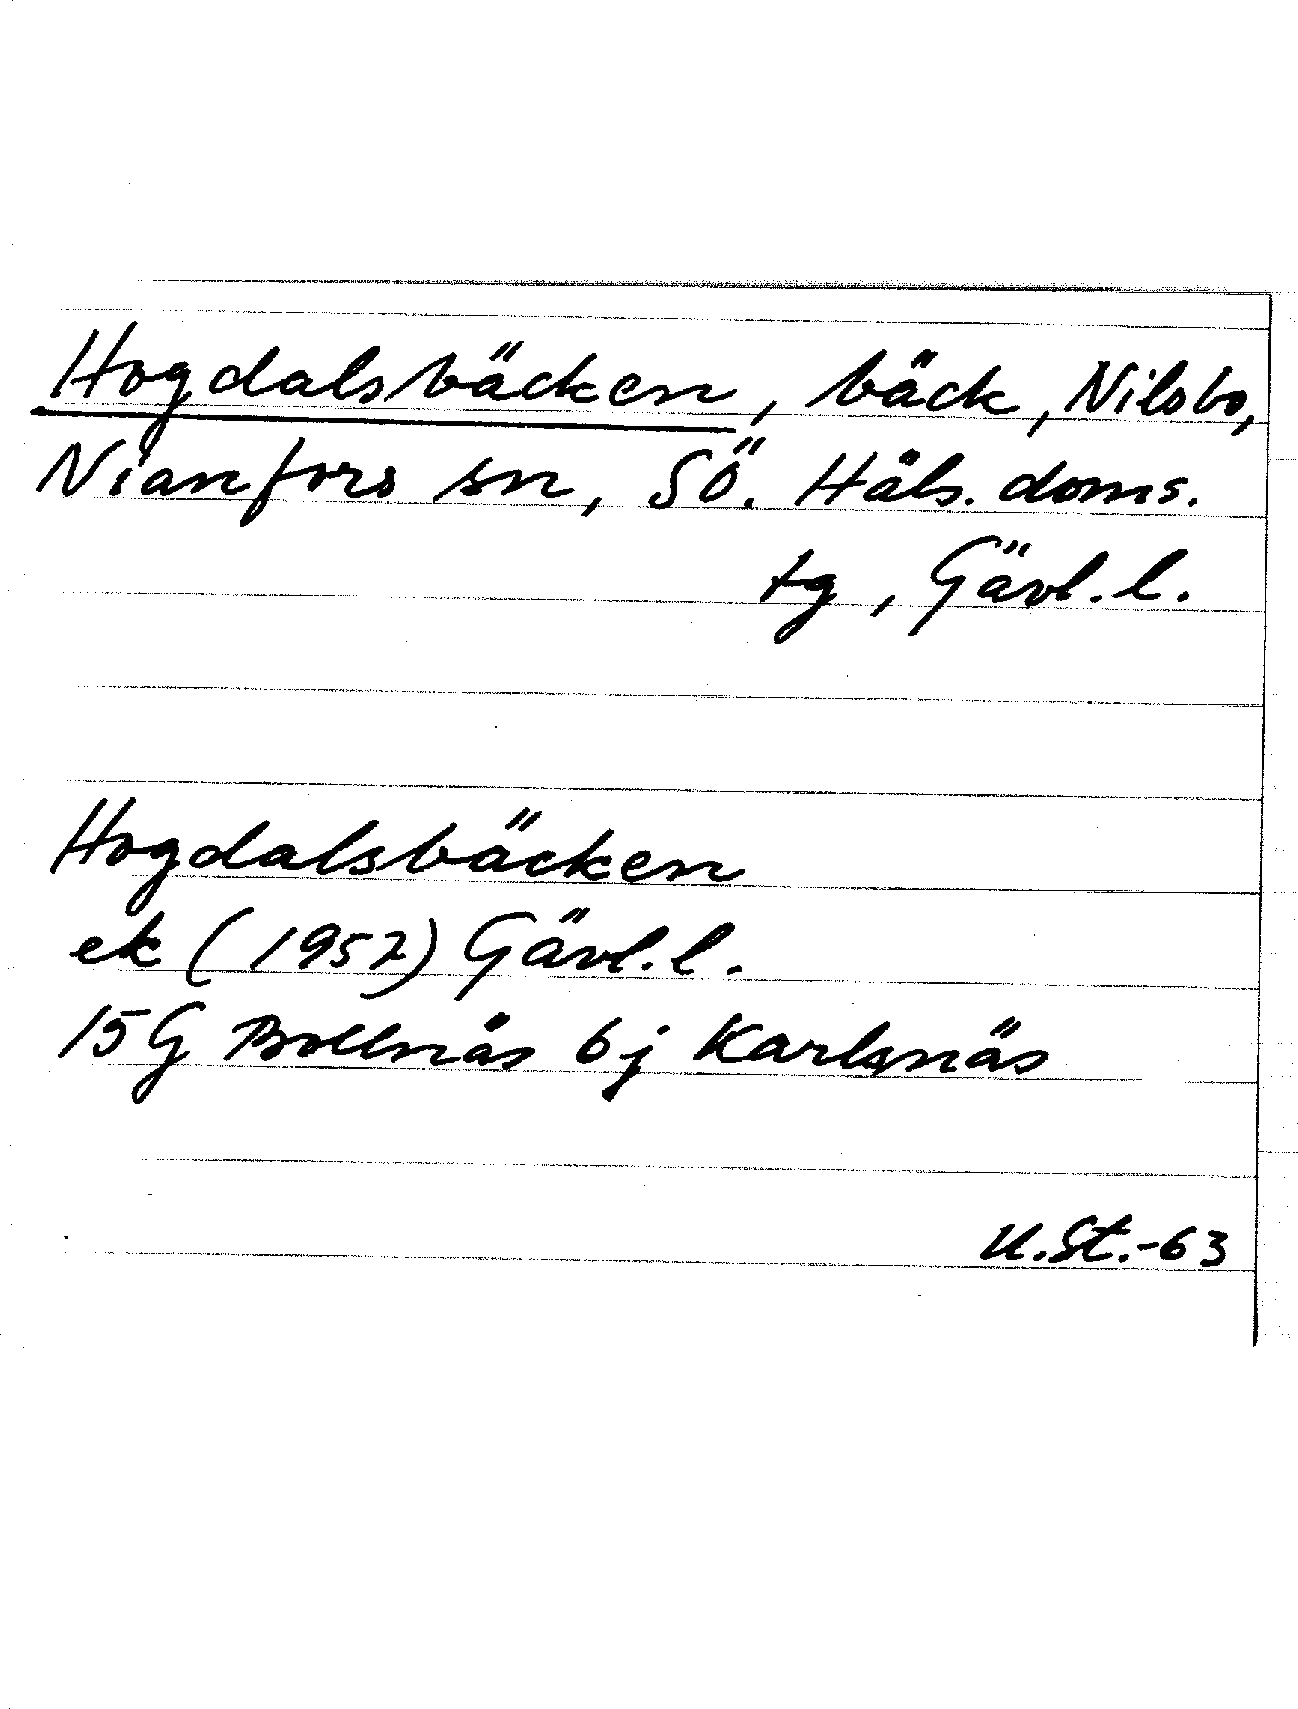 Hogdalsbäcken, bäck, Nilsbo,
Nianfors sn, SÖ. Häls. doms.
tg, Gävl. l.
Hogdalsbäcken
ek (1957) Gävl. l.
15G Bollnäs 6j Karlsnäs
U.St.-63